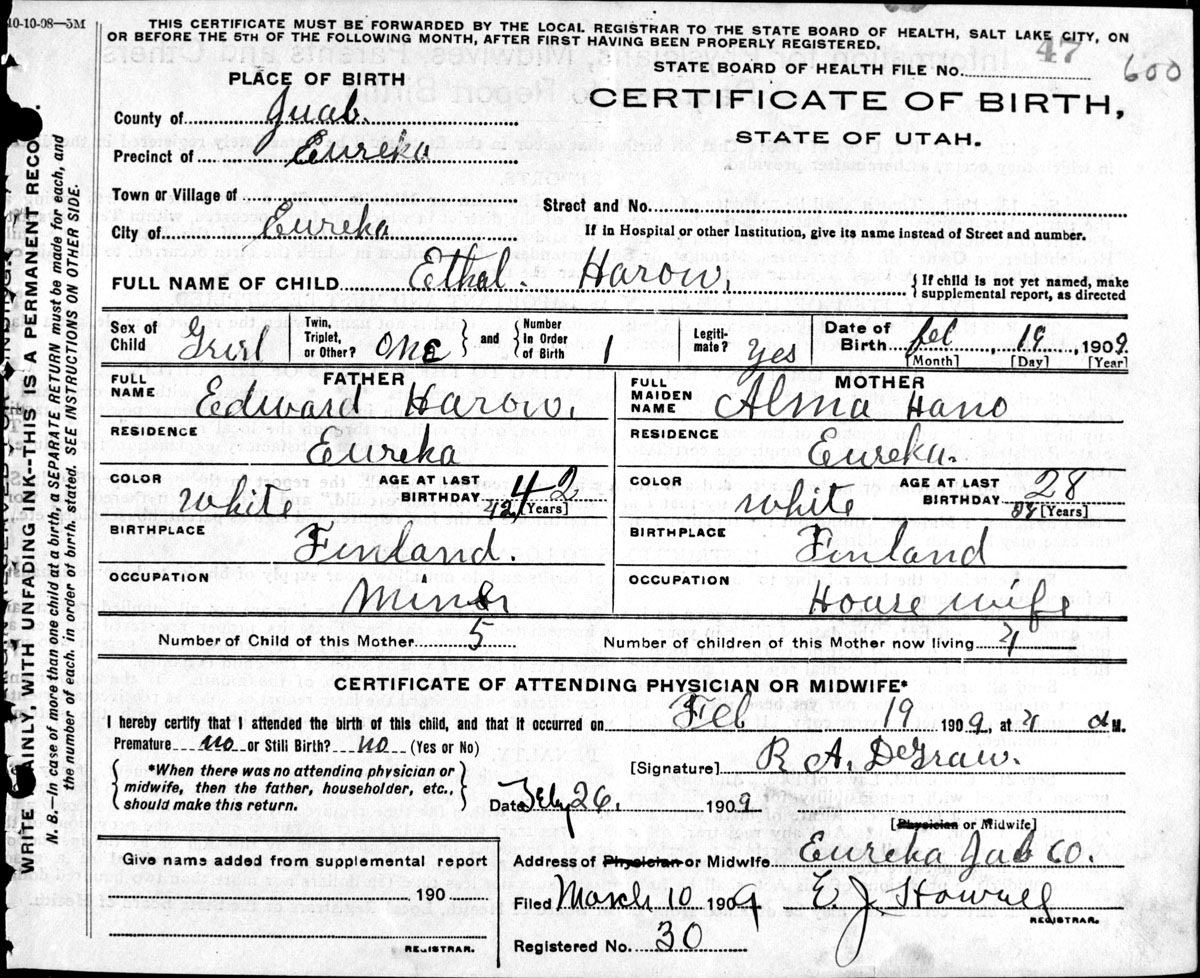 10-10-08—5M
THIS CERTIFICATE MUST BE FORWARDED BY THE LOCAL REGISTRAR TO THE STATE BOARD OF HEALTH, SALT LAKE CITY, ON
OR BEFORE THE 5TH OF THE FOLLOWING MONTH, AFTER FIRST HAVING BEEN PROPERLY REGISTERED.
STATE BOARD OF HEALTH FILE No. 47 600
PLACE OF BIRTH
CERTIFICATE OF BIRTH,
STATE OF UTAH.
County of Juab.
Precinct of Eureka
Town or Village of
Street and No.
City of Eureka
If in Hospital or other Institution, give its name instead of Street and number.
FULL NAME OF CHILD Ethel. Harow. { If child is not yet named, make
supplemental report, as directed
Sex of Child Girl Twin, Triplet, or Other? one and Number In Order of Birth 1 Legitimate? yes Date of Birth Feb, 19, 1909.
[Month] [Day] [Year]
FATHER
FULL NAME Edward Harow.
RESIDENCE Eureka
COLOR White AGE AT LAST BIRTHDAY 42 42 [Years]
BIRTHPLACE Finland.
OCCUPATION Miner
MOTHER
FULL MAIDEN NAME Alma Hano
RESIDENCE Eureka.
COLOR White AGE AT LAST BIRTHDAY 28 28 [Years]
BIRTHPLACE Finland
OCCUPATION House wife
Number of Child of this Mother 5
Number of children of this Mother now living 4
CERTIFICATE OF ATTENDING PHYSICIAN OR MIDWIFE*
I hereby certify that I attended the birth of this child, and that it occurred on Feb 19 1909, at 4 a M.
Premature no or Still Birth? no (Yes or No)
{ *When there was no attending physician or
midwife, then the father, householder, etc.,
should make this return. }
[Signature] R. A. DeGraw.
Date Feby 26, 1909
[Physician or Midwife]
Give name added from supplemental report
190
REGISTRAR.
Address of Physician or Midwife Eureka Juab Co.
Filed March 10 1909 E J Howell
REGISTRAR.
Registered No. 30
WRITE PLAINLY WITH UNFADING INK--THIS IS A PERMANENT RECO
N. B.—In case of more than one child at a birth, a SEPARATE RETURN must be made for each, and
the number of each, in order of birth, stated. SEE INSTRUCTIONS ON OTHER SIDE.